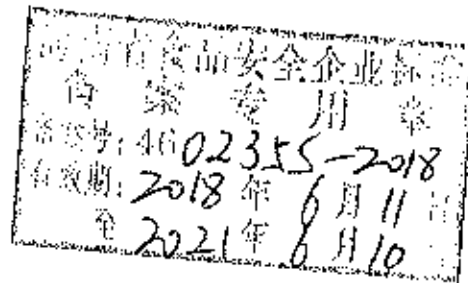 海南省食品安全企业标准
备案专用章
备案号:4602355-2018
有效期:2018年6月11日
至 2021年6月10日